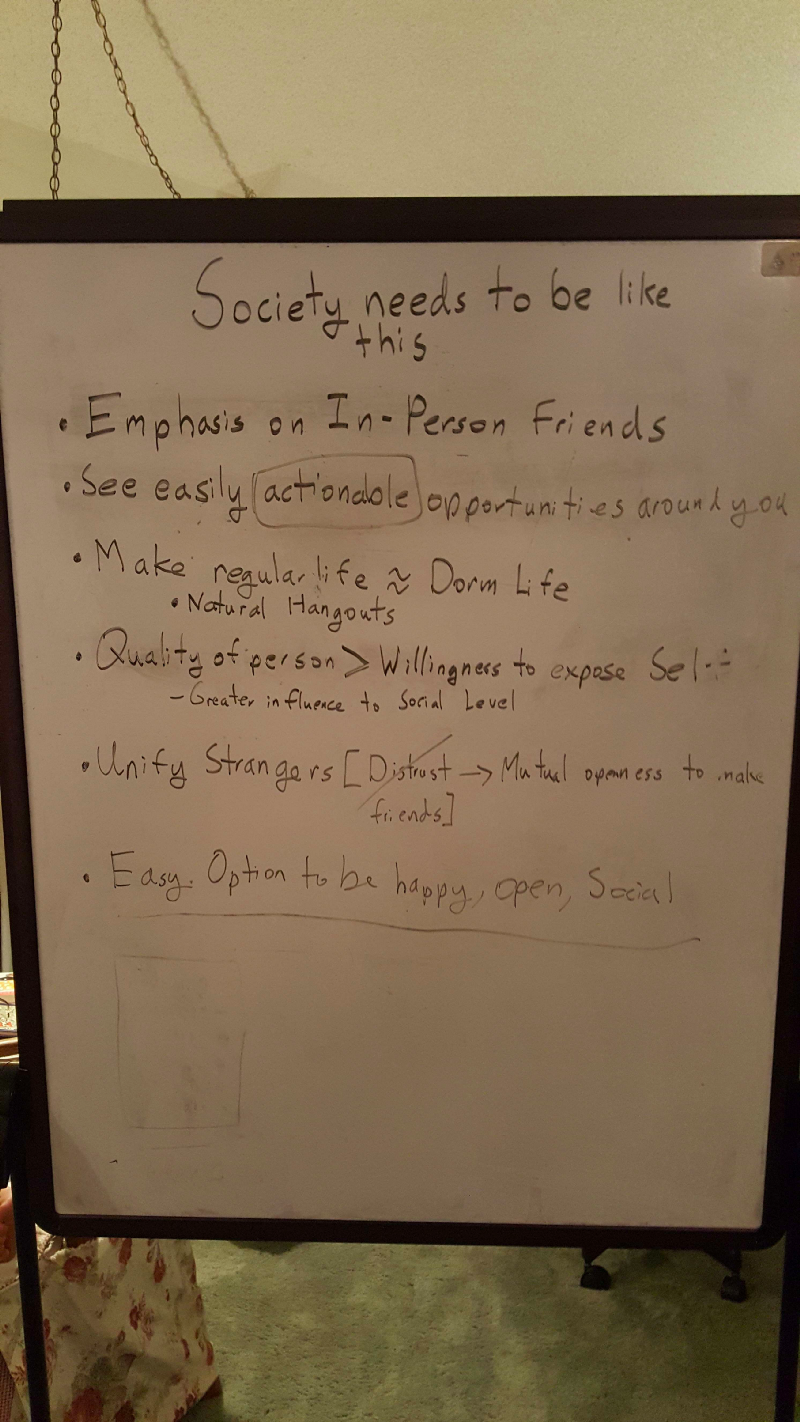 Society needs to be like
this
• Emphasis on In-Person Friends
• See easily actionable opportunities around you
• Make regular life ≈ Dorm Life
• Natural Hangouts
• Quality of person > Willingness to expose Self
- Greater influence to Social Level
• Unify Strangers [Distrust → Mutual openness to make
friends]
• Easy Option to be happy, open, Social